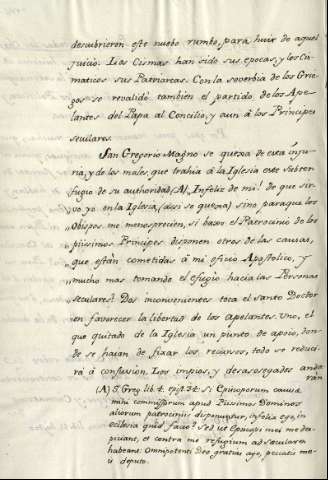 descubrieron este nuebo rumbo, para huir de aquel
juicio. Los Cismas han sido sus epocas, y los Cis-
maticos sus Patriarcas. Con la soverbia de los Grie-
gos se revalidó tambien el partido de los Ape-
lantes del Papa al Concilio, y aun á los Principes
seculares.
San Gregorio Magno se quexa de esta inju-
ria, y de los males, que trahia á la Iglesia este subter-
fugio de su authoridad (A) Infeliz de mi! de que sir-
vo yo en la Iglesia (assi se quexa) sino para que los
Obispos me menosprecien, si baxo el Patrocinio de los
piissimos Principes disponen otros de las causas,
que estàn cometidas á mi oficio Apostolico, y
mucho mas tomando el efugio hacia las Personas
seculares? Dos inconvenientes toca el santo Doctor
en favorecer la libertad de los apelantes. Uno, el
que quitado de la Iglesia un punto de apoio, don-
de se haian de fixar los recursos, todo se reduci-
rá á confusion. Los impios, y desasosegados anda
ran
(A) S. Greg. lib. 4. epist. 34. Si Episcoporum causæ
mihi commissorum apud Piissimos Dominos
aliorum patrociniis disponuntur, infelix ego, in
ecclesia quid facio? Sed ut Episcopi mei me des-
piciant, et contra me refugium ad seculares
habeant. Omnipotenti Deo gratias ago, peccatis me-
is deputo.